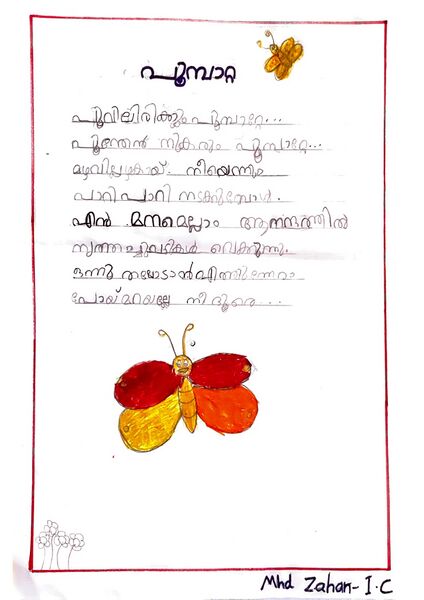 പൂമ്പാറ്റ
പൂവിലിരിക്കും പൂമ്പാറ്റേ...
പൂന്തേൻ നുകരും പൂമ്പാറ്റേ...
മഴവില്ലഴകായ് നീയെന്നും
പാറി പാറി നടക്കുമ്പോൾ.
എൻ മനമെല്ലാം ആനന്ദത്തിൽ
നൃത്തച്ചുവടുകൾ വെക്കുന്നു.
ഒന്നു തലോടാൻ
പോയ് മറയല്ലേ നീ ദൂരെ...
Mhd Zahan- I.C